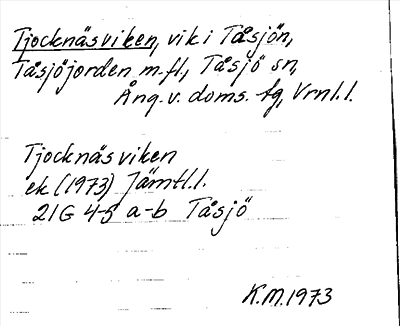 Tjocknäsviken, vik i Tåsjön,
Tåsjöjorden m.fl., Tåsjö sn,
Ång. v. doms. tg, Vrnl. l.
Tjocknäsviken
ek (1973) Jämtl. l.
21G 4-5 a-b Tåsjö
K.M. 1973